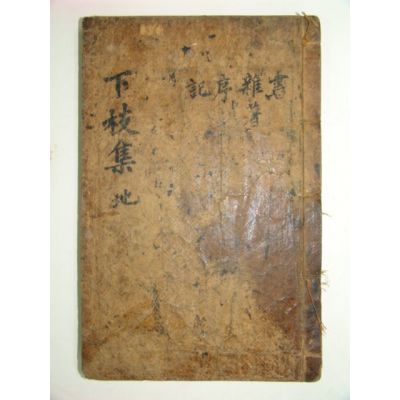 下枝集 地
書
雜著
序
記